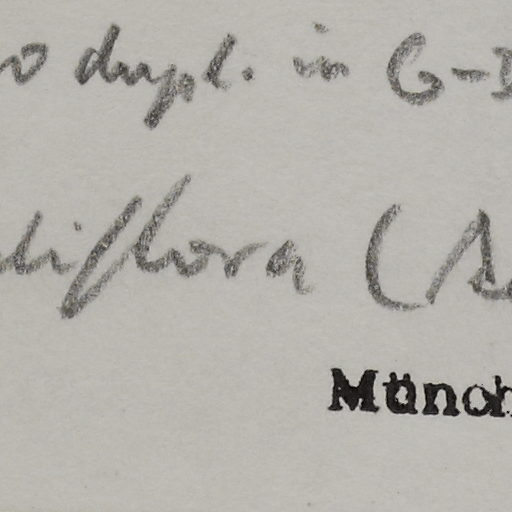 dupl. in G-
liflora (
Münch